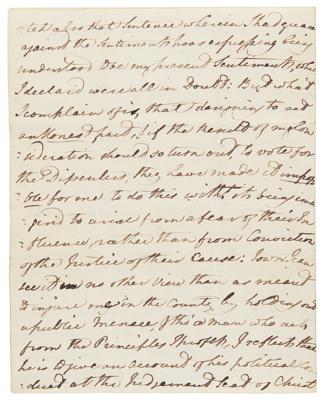 ted also that Sentence wherein I had guarded
against the Sentiments I was expressing being
understood to be my present Sentiments, which
I declared were all in Doubt: But what
I complain of is, that designing to act
an honest part, if the result of my Con-
-sideration should so turn out, to vote for
the Dissenters, they have made it impossi-
ble for me to do this without its being ima-
gined to arise from a fear of their In-
-fluence, rather than from Conviction
of the Justice of their Cause: I own I can
see it in no other view than as meant
to injure me in the County, by holding out
a public Menace of tho' a man who acts
from the Principles I profess, I reflects that
he is to give an account of his political Con-
duct at the Judgement Seat of Christ